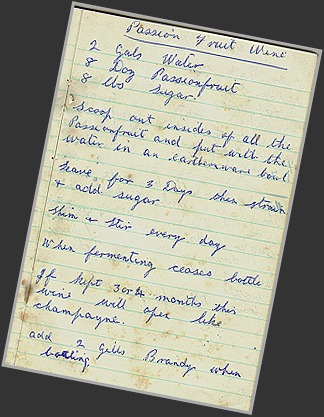 Passion Fruit Wine
2 Gals Water
8 Doz Passionfruit
8 lbs Sugar.
Scoop out insides of all the
Passionfruit and put with the
water in an earthenware bowl
Leave for 3 Days then strain
+ add sugar
Skim + stir every day
When fermenting ceases bottle
If kept 3 or 4 months this
wine will open like
champagne.
add 2 Gills Brandy when
bottling.